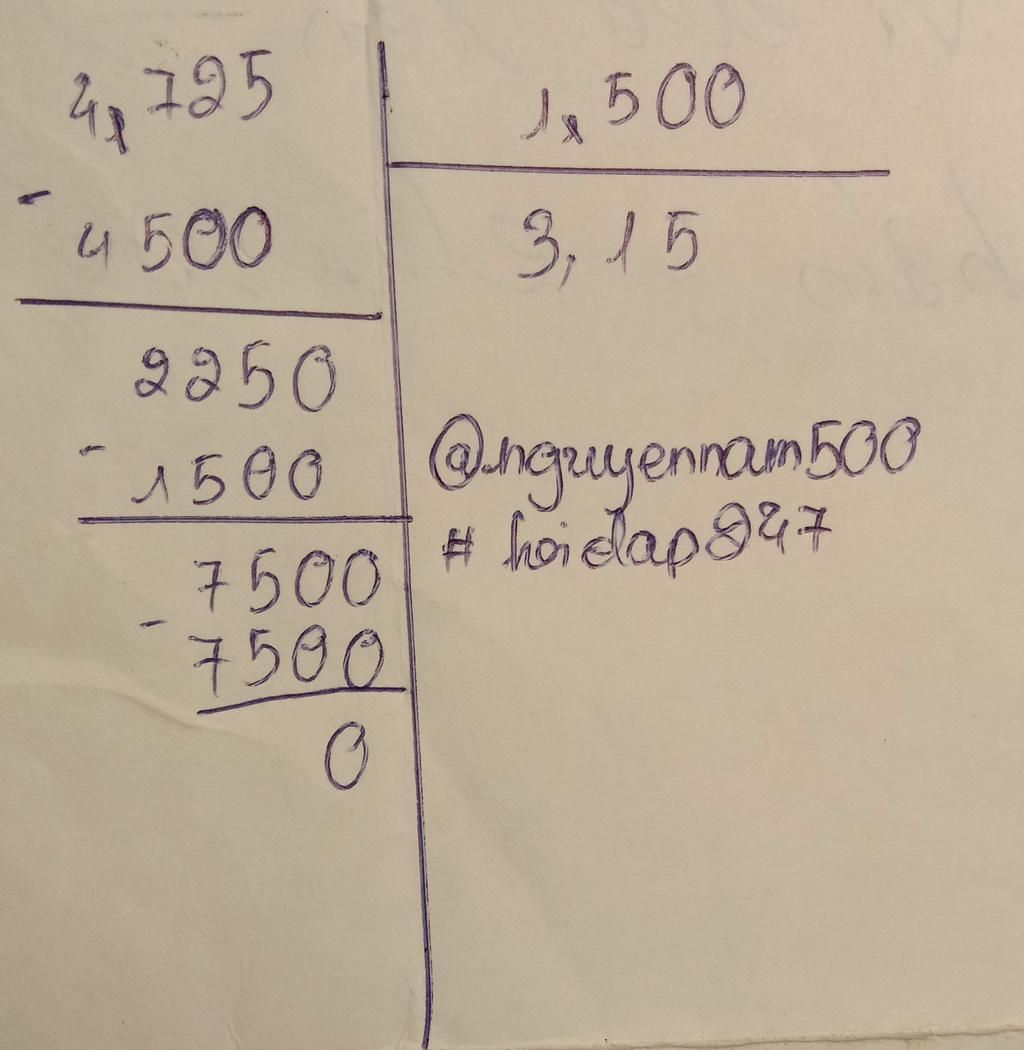 4,725
1,500
- 4500
3,15
2250
- 1500
7500
- 7500
0
@nguyennam500
# hoidap247